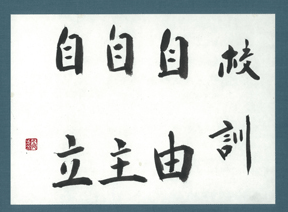 校訓
自由
自主
自立